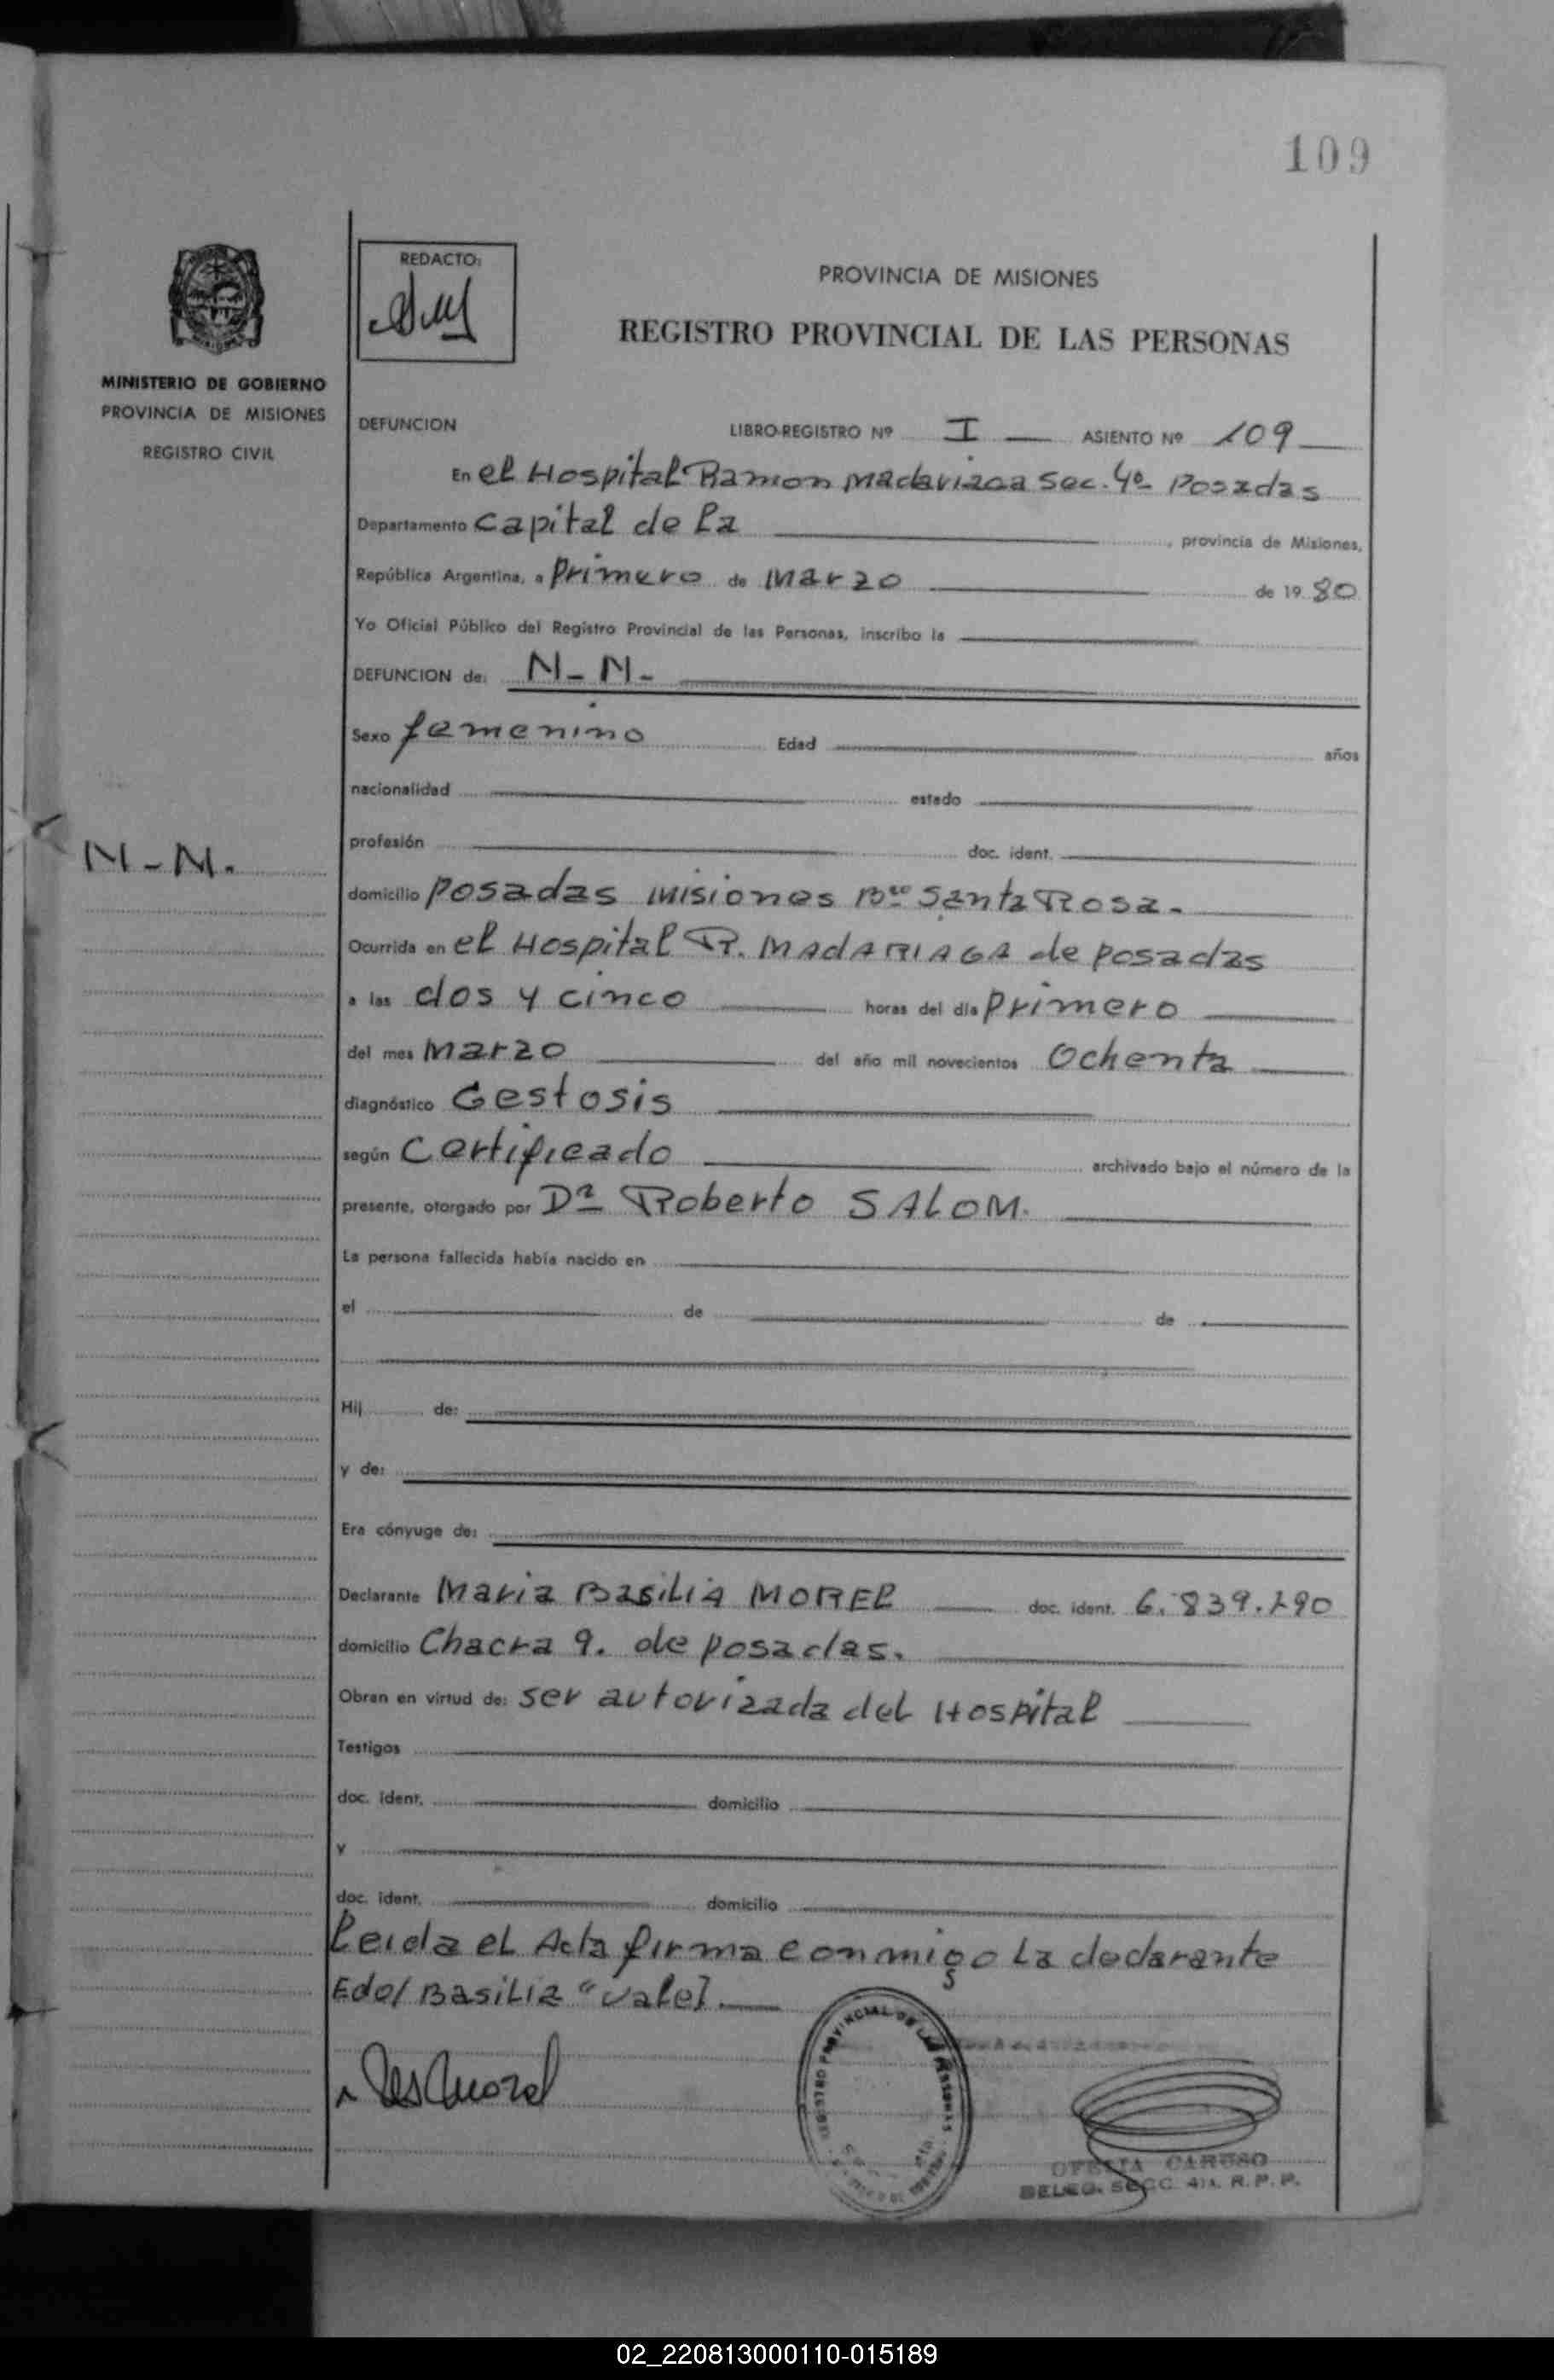 109
REDACTO:
PROVINCIA DE MISIONES
REGISTRO PROVINCIAL DE LAS PERSONAS
MINISTERIO DE GOBIERNO
PROVINCIA DE MISIONES
REGISTRO CIVIL
DEFUNCION LIBRO-REGISTRO Nº I ASIENTO Nº 109
En el Hospital Ramon Madariaga Sec. 4º Posadas
Departamento Capital de la , provincia de Misiones,
República Argentina, a primero de Marzo de 19 80
Yo Oficial Público del Registro Provincial de las Personas, inscribo la
DEFUNCION de: N-N-
Sexo femenino Edad años
nacionalidad estado
profesión doc. ident.
N-N.
domicilio posadas misiones Bº Santa Rosa.
Ocurrida en el Hospital R. MADARIAGA de posadas
a las dos y cinco horas del día primero
del mes Marzo del año mil novecientos Ochenta
diagnóstico Gestosis
según Certificado archivado bajo el número de la
presente, otorgado por Dr Roberto SALOM.
La persona fallecida había nacido en
el de de
Hij de:
y de:
Era cónyuge de:
Declarante Maria Basilia MOREL doc. ident. 6.839.190
domicilio Chacra 9. de posadas.
Obran en virtud de: ser autorizada del Hospital
Testigos
doc. ident. domicilio
y
doc. ident. domicilio
Leida el Acta firma conmigo La declarante
Edo/ Basilia "vale]
REGISTRO PROVINCIAL DE LAS PERSONAS
OFELIA CARUSO
DELEG. SECC. 4ta. R. P. P.
02_220813000110-015189